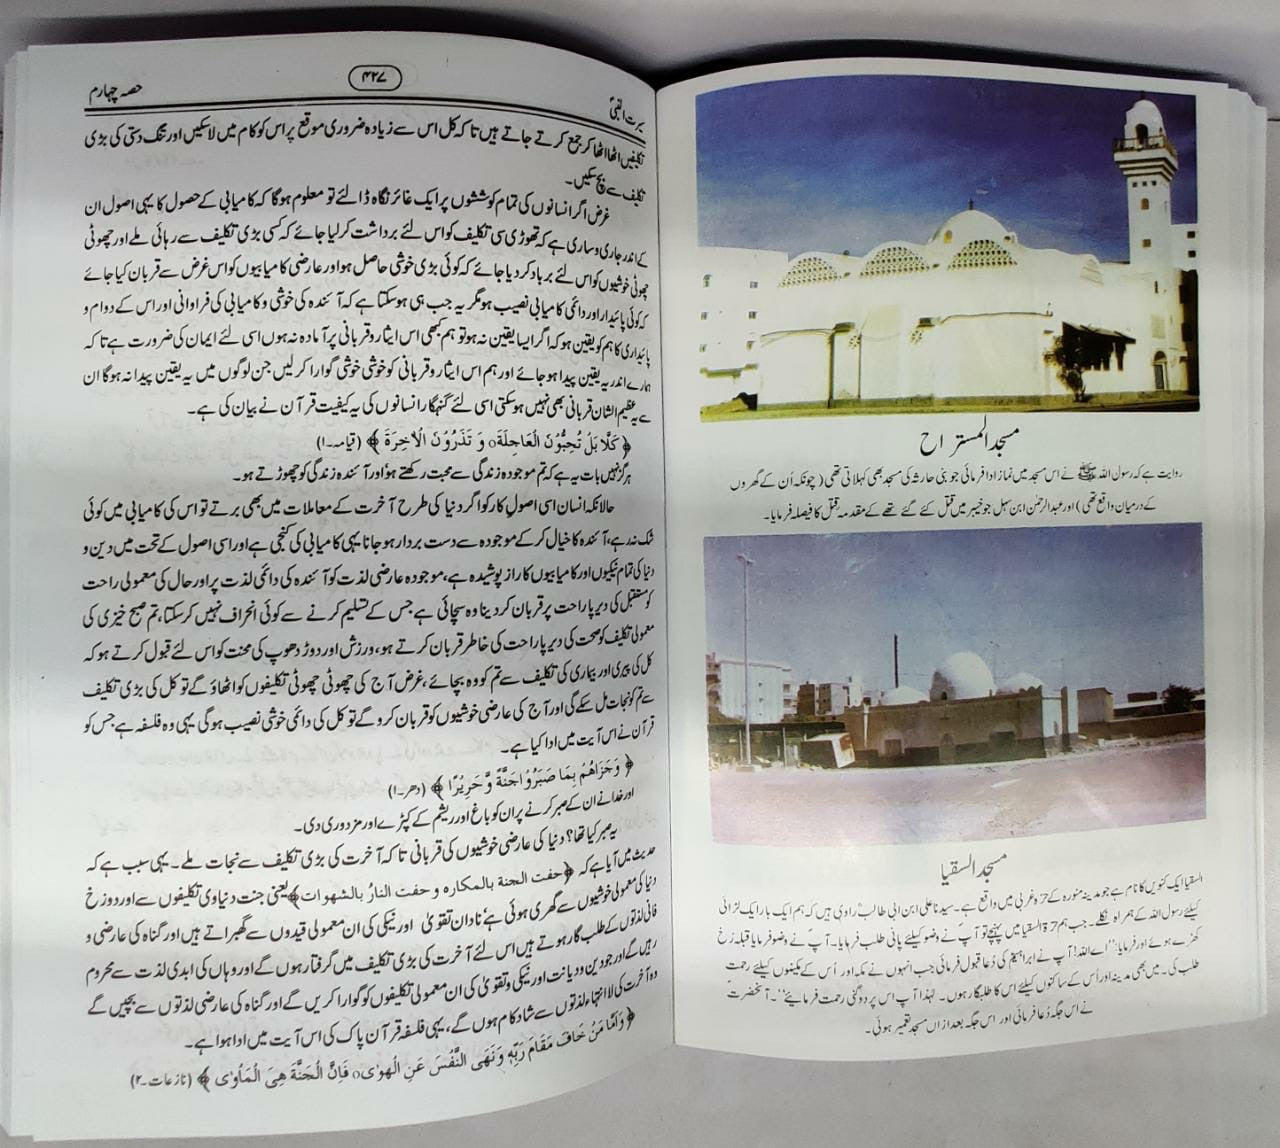 سیرت النبیؐ
۴۲۷
حصہ چہارم
تکلیفیں اٹھا اٹھا کر جمع کرتے جاتے ہیں تاکہ کل اس سے زیادہ ضروری موقع پر اس کو کام میں لا سکیں اور تنگ دستی کی بڑی
تکلیف سے بچ سکیں۔
غرض اگر انسانوں کی تمام کوششوں پر ایک غائر نگاہ ڈالئے تو معلوم ہوگا کہ کامیابی کے حصول کا یہی اصول ان
کے اندر جاری و ساری ہے کہ تھوڑی سی تکلیف کو اس لئے برداشت کر لیا جائے کہ کسی بڑی تکلیف سے رہائی ملے اور چھوٹی
چھوٹی خوشیوں کو اس لئے برباد کر دیا جائے کہ کوئی بڑی خوشی حاصل ہو اور عارضی کامیابیوں کو اس غرض سے قربان کیا جائے
کہ کوئی پائیدار اور دائمی کامیابی نصیب ہو مگر یہ جب ہی ہو سکتا ہے کہ آئندہ کی خوشی و کامیابی کی فراوانی اور اس کے دوام و
پائیداری کا ہم کو یقین ہو کہ اگر ایسا یقین نہ ہو تو ہم کبھی اس ایثار و قربانی پر آمادہ نہ ہوں اسی لئے ایمان کی ضرورت ہے تاکہ
ہمارے اندر یہ یقین پیدا ہو جائے اور ہم اس ایثار و قربانی کو خوشی خوشی گوارا کر لیں جن لوگوں میں یہ یقین پیدا نہ ہوگا ان
سے یہ عظیم الشان قربانی بھی نہیں ہو سکتی اسی لئے گنہگار انسانوں کی یہ کیفیت قرآن نے بیان کی ہے۔
﴿ كَلَّا بَلْ تُحِبُّوْنَ الْعَاجِلَةَ٥ وَ تَذَرُوْنَ الْاٰخِرَةَ ﴾ (قیامہ۔۱)
ہرگز نہیں بات یہ ہے کہ تم موجودہ زندگی سے محبت رکھتے ہو اور آئندہ زندگی کو چھوڑتے ہو۔
حالانکہ انسان اسی اصولِ کار کو اگر دنیا کی طرح آخرت کے معاملات میں بھی برتے تو اس کی کامیابی میں کوئی
شک نہ رہے، آئندہ کا خیال کر کے موجودہ سے دست بردار ہو جانا یہی کامیابی کی کنجی ہے اور اسی اصول کے تحت میں دین و
دنیا کی تمام نیکیوں اور کامیابیوں کا راز پوشیدہ ہے، موجودہ عارضی لذت کو آئندہ کی دائمی لذت پر اور حال کی معمولی راحت
کو مستقبل کی دیرپا راحت پر قربان کر دینا وہ سچائی ہے جس کے تسلیم کرنے سے کوئی انحراف نہیں کر سکتا، تم صبح خیزی کی
معمولی تکلیف کو صحت کی دیرپا راحت کی خاطر قربان کرتے ہو، ورزش اور دوڑ دھوپ کی محنت کو اس لئے قبول کرتے ہو کہ
کل کی پیری اور بیماری کی تکلیف سے تم کو وہ بچائے، غرض آج کی چھوٹی چھوٹی تکلیفوں کو اٹھاؤ گے تو کل کی بڑی تکلیف
سے تم کو نجات مل سکے گی اور آج کی عارضی خوشیوں کو قربان کرو گے تو کل کی دائمی خوشی نصیب ہوگی یہی وہ فلسفہ ہے جس کو
قرآن نے اس آیت میں ادا کیا ہے۔
﴿ وَجَزَاهُمْ بِمَا صَبَرُوْا جَنَّةً وَّحَرِيْرًا ﴾ (دھر۔۱)
اور خدا نے ان کے صبر کرنے پر ان کو باغ اور ریشم کے کپڑے اور مزدوری دی۔
یہ صبر کیا تھا؟ دنیا کی عارضی خوشیوں کی قربانی تاکہ آخرت کی بڑی تکلیف سے نجات ملے۔ یہی سبب ہے کہ
حدیث میں آیا ہے کہ ﴿حفت الجنة بالمكاره و حفت النارُ بالشهوات﴾ یعنی جنت دنیاوی تکلیفوں سے اور دوزخ
دنیا کی معمولی خوشیوں سے گھری ہوئی ہے نادان تقویٰ اور نیکی کی ان معمولی قیدوں سے گھبراتے ہیں اور گناہ کی عارضی و
فانی لذتوں کے طلب گار ہوتے ہیں اس لئے آخرت کی بڑی تکلیف میں گرفتار ہوں گے اور وہاں کی ابدی لذت سے محروم
رہیں گے اور جو دین و دیانت اور نیکی و تقویٰ کی ان معمولی تکلیفوں کو گوارا کریں گے اور گناہ کی عارضی لذتوں سے بچیں گے
وہ آخرت کی لا انتہاء لذتوں سے شاد کام ہوں گے، یہی فلسفہ قرآن پاک کی اس آیت میں ادا ہوا ہے۔
﴿ وَاَمَّا مَنْ خَافَ مَقَامَ رَبِّهٖ وَنَهَى النَّفْسَ عَنِ الْهَوٰى٥ فَاِنَّ الْجَنَّةَ هِيَ الْمَاْوٰى ﴾ (نازعات۔۲)
مسجد المستراح
روایت ہے کہ رسول اللہ ﷺ نے اس مسجد میں نماز ادا فرمائی جو بنی حارثہ کی مسجد بھی کہلاتی تھی (چونکہ اُن کے گھروں
کے درمیان واقع تھی) اور عبدالرحمٰن ابن سہل جو خیبر میں قتل کئے گئے تھے کے مقدمہ قتل کا فیصلہ فرمایا۔
مسجد السقیا
السقیا ایک کنویں کا نام ہے جو مدینہ منورہ کے حرّہ غربی میں واقع ہے۔ سیدنا علی ابن ابی طالبؓ راوی ہیں کہ ہم ایک بار ایک لڑائی
کیلئے رسول اللہ کے ہمراہ نکلے۔ جب ہم حرّۃ السقیا میں پہنچے تو آپؐ نے وضو کیلئے پانی طلب فرمایا۔ آپؐ نے وضو فرمایا قبلہ رخ
کھڑے ہوئے اور فرمایا: ''اے اللہ! آپ نے ابراہیمؑ کی دُعا قبول فرمائی جب انہوں نے مکہ اور اُس کے مکینوں کیلئے رحمت
طلب کی۔ میں بھی مدینہ اور اُس کے ساکنوں کیلئے اس کا طلبگار ہوں۔ لہٰذا آپ اس پر دوگنی رحمت فرمایئے''۔ آنحضرتؐ
نے اس جگہ دُعا فرمائی اور اس جگہ بعد ازاں مسجد تعمیر ہوئی۔